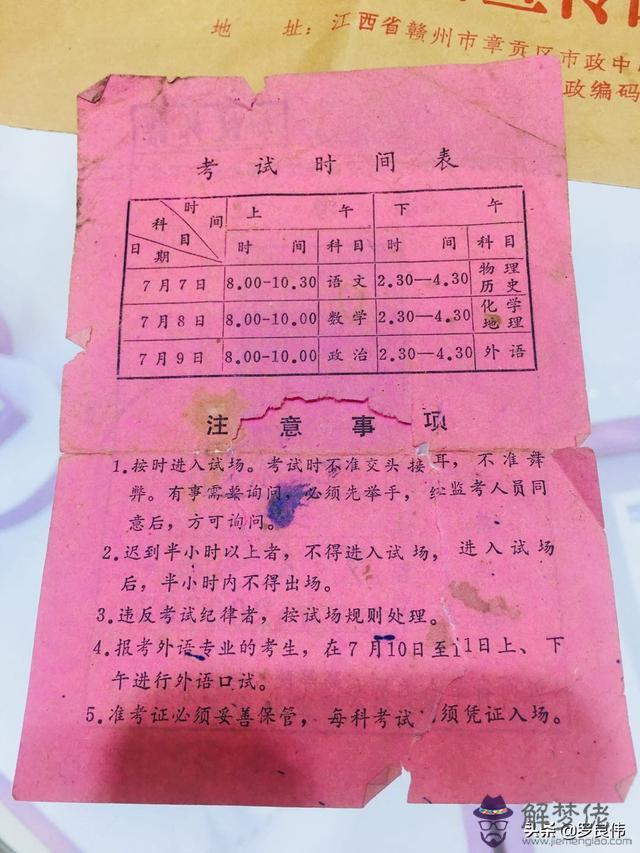 地 址：江西省赣州市章贡区市政中
政编码
考试时间表
时间 上午 下午
科目
日期 时间 科目 时间 科目
7月7日 8.00-10.30 语文 2.30—4.30 物理
历史
7月8日 8.00-10.00 数学 2.30—4.30 化学
地理
7月9日 8.00-10.00 政治 2.30—4.30 外语
注意事项
1.按时进入试场。考试时不准交头接耳，不准舞
弊。有事需要询问，必须先举手，经监考人员同
意后，方可询问。
2.迟到半小时以上者，不得进入试场，进入试场
后，半小时内不得出场。
3.违反考试纪律者，按试场规则处理。
4.报考外语专业的考生，在7月10日至11日上、下
午进行外语口试。
5.准考证必须妥善保管，每科考试 须凭证入场。
解梦佬
头条@罗良伟
www.jiemenglao.com